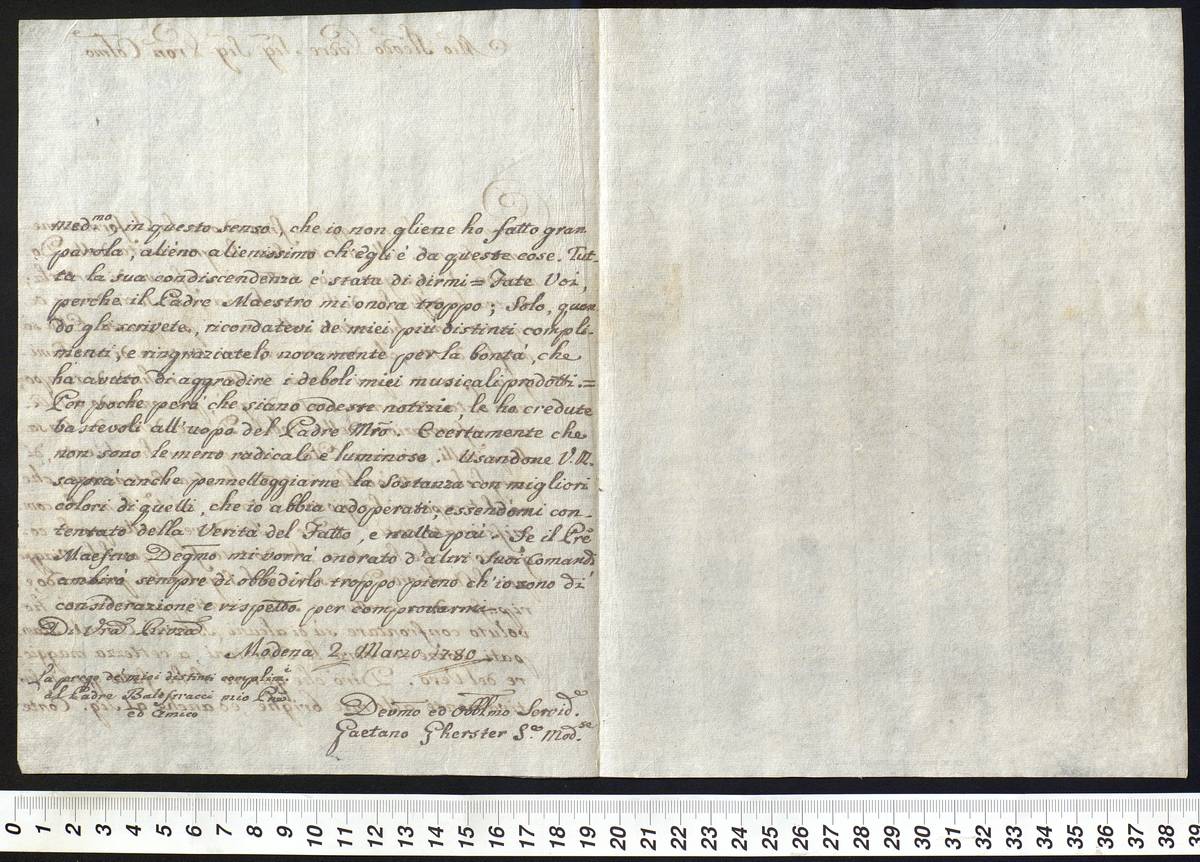 med.mo in questo senso, che io non gliene ho fatto gran
parola, alieno alienissimo ch'egli è da queste cose. Tut-
ta la sua condiscendenza è stata di dirmi = Fate Voi,
perche il Padre Maestro mi onora troppo; Solo, quan-
do gli scrivete, ricordatevi de' miei più distinti compli-
menti, e ringraziatelo novamente per la bontà, che
ha avuto di aggradire i deboli miei musicali prodotti. =
Per poche però che siano codeste notizie, le ho credute
bastevoli all'uopo del Padre Mro. E certamente che
non sono le meno radicali e luminose. Usandone V. R.
saprà anche pennelleggiarne la Sostanza con migliori
colori di quelli, che io abbia adoperati, essendomi con-
tentato della Verità del Fatto, e nulla più. Se il Pre
Maestro Degmo mi vorrà onorato d'altri Suoi Comandi
ambirò sempre di obbedirlo troppo pieno ch'io sono di
considerazione e rispetto per comprovarmi
Di Vra Rivza
Modena 2. Marzo 1780
La prego de' miei distinti complimi
al Padre Baldsracci mio Pnē
ed Amico
Devmo ed Obbmo Servid.e
Gaetano Gherster S.e Mod.se
0 1 2 3 4 5 6 7 8 9 10 11 12 13 14 15 16 17 18 19 20 21 22 23 24 25 26 27 28 29 30 31 32 33 34 35 36 37 38 39